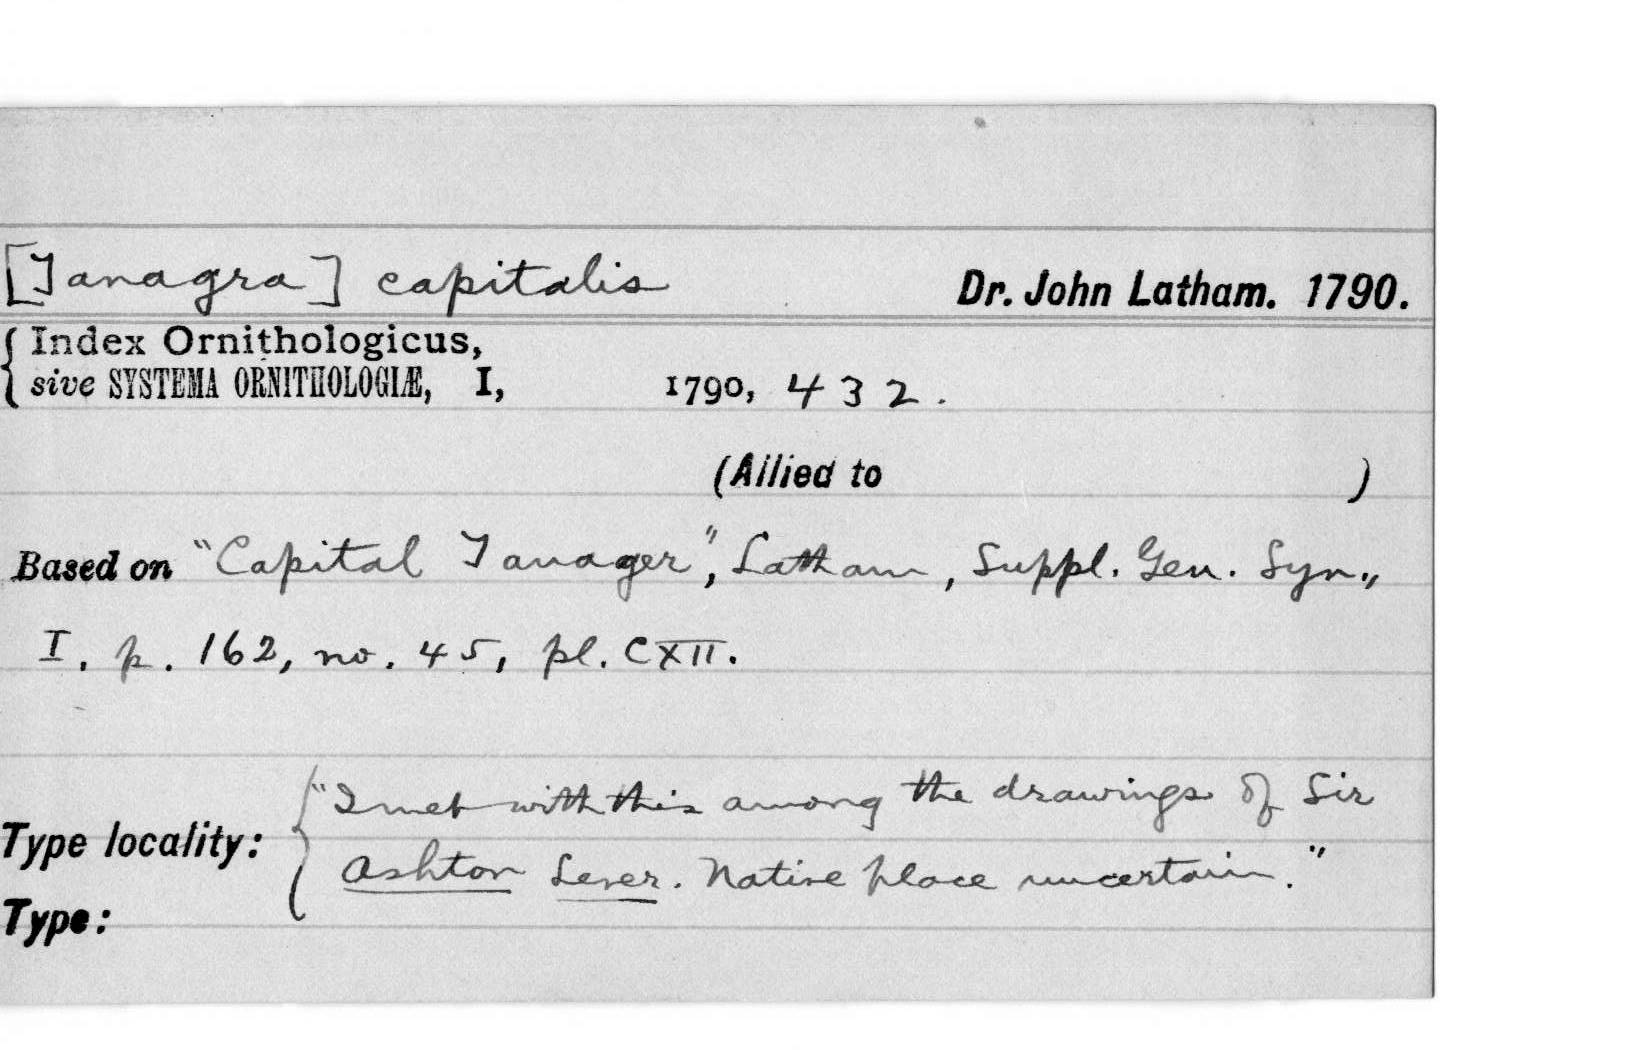 [Tanagra] capitalis Dr. John Latham. 1790.
Index Ornithologicus,
sive SYSTEMA ORNITHOLOGIÆ, I, 1790, 432.
(Allied to )
Based on "Capital Tanager", Latham, Suppl. Gen. Syn.,
I, p. 162, no. 45, pl. CXII.
"I met with this among the drawings of Sir
Type locality:
Ashton Lever. Native place uncertain."
Type: